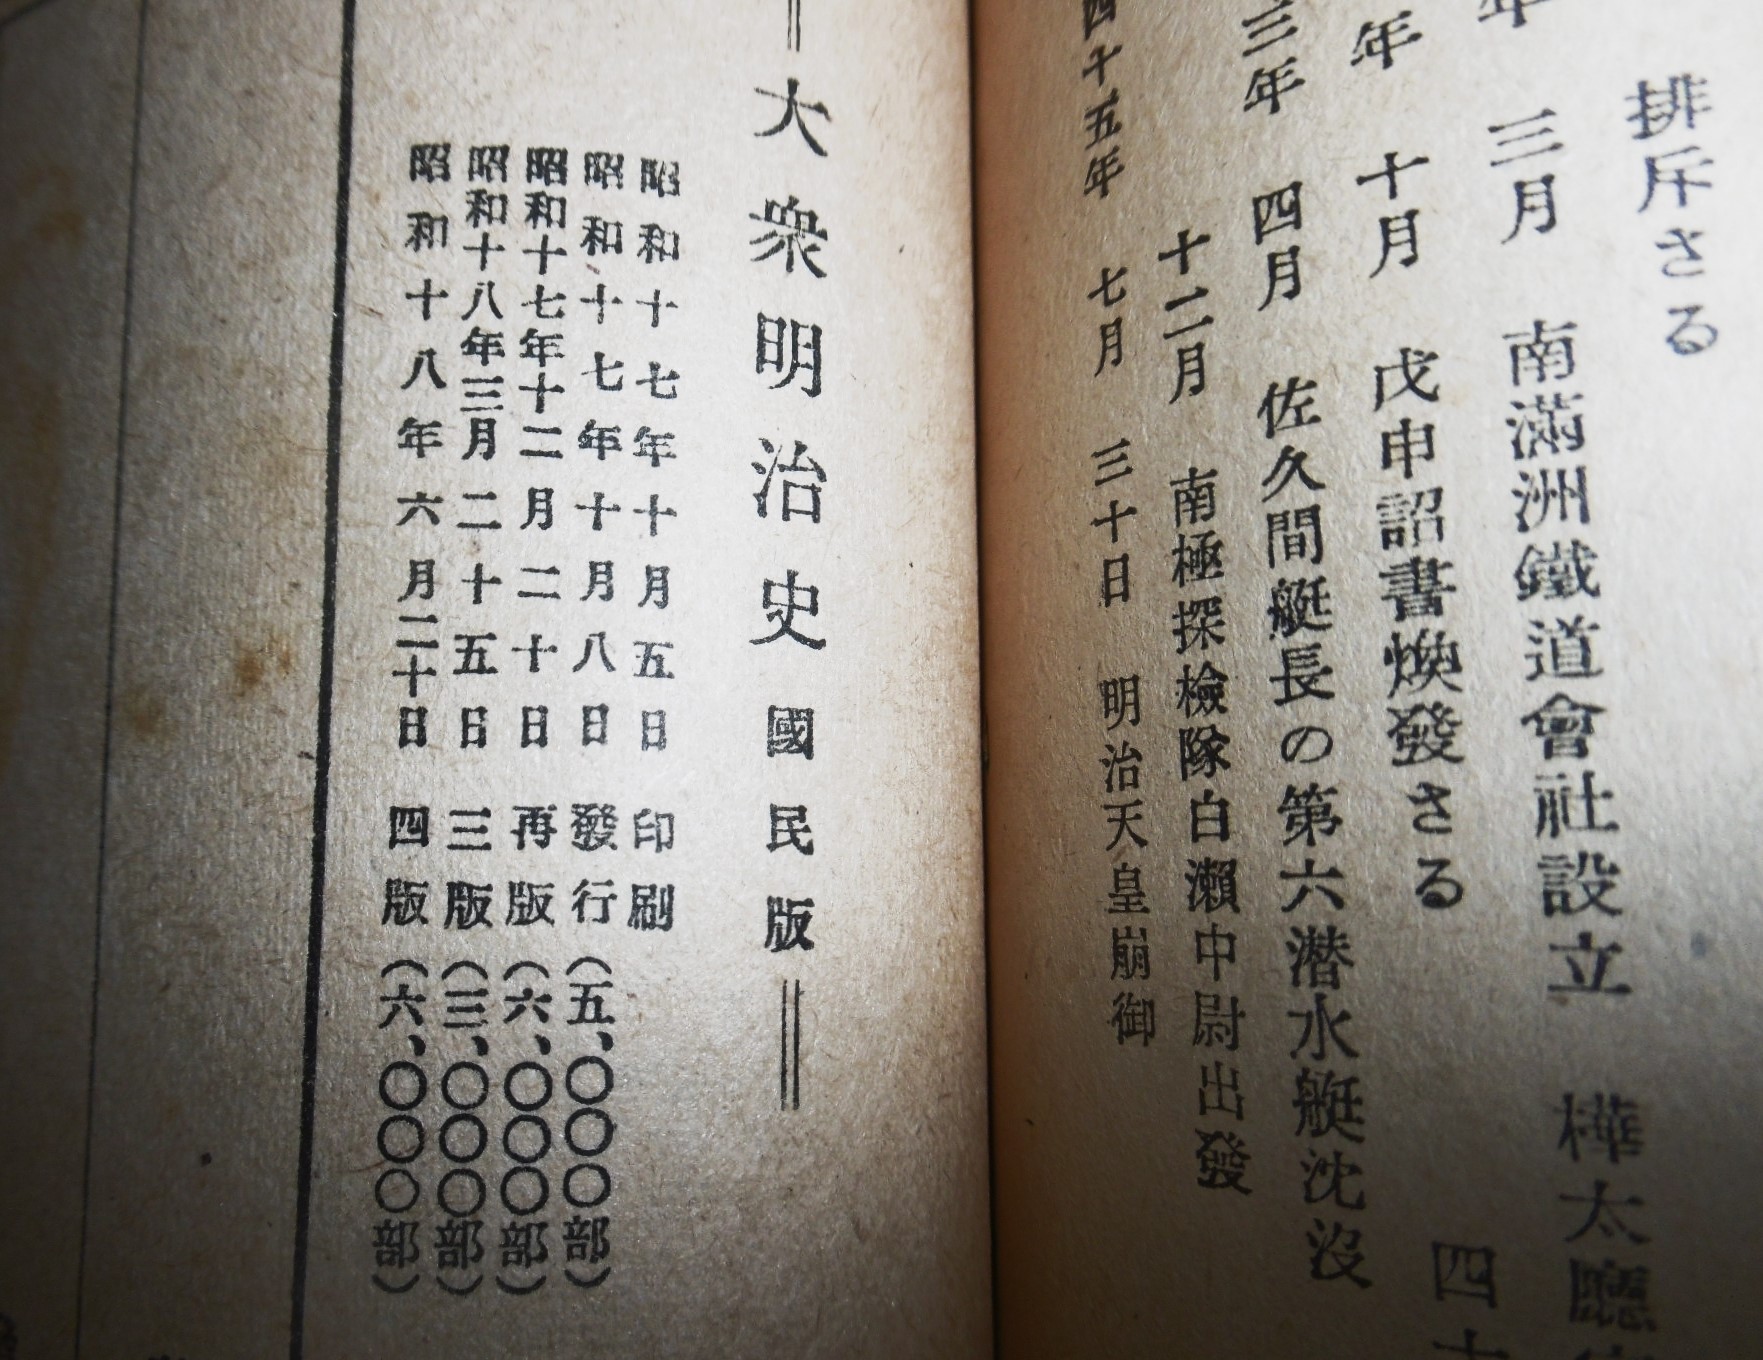 排斥さる
年 三月 南滿洲鐵道會社設立 樺太廳
年 十月 戊申詔書煥發さる 四十
三年 四月 佐久間艇長の第六潜水艇沈沒
十二月 南極探檢隊白瀨中尉出發
四十五年 七月 三十日 明治天皇崩御
大衆明治史 國民版
昭和十七年十月五日 印刷
昭和十七年十月八日 發行 (五、〇〇〇部)
昭和十七年十二月二十日 再版 (六、〇〇〇部)
昭和十八年三月二十五日 三版 (三、〇〇〇部)
昭和十八年六月二十日 四版 (六、〇〇〇部)